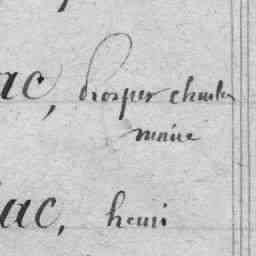 ac, prosper charles
marie
ac, henri